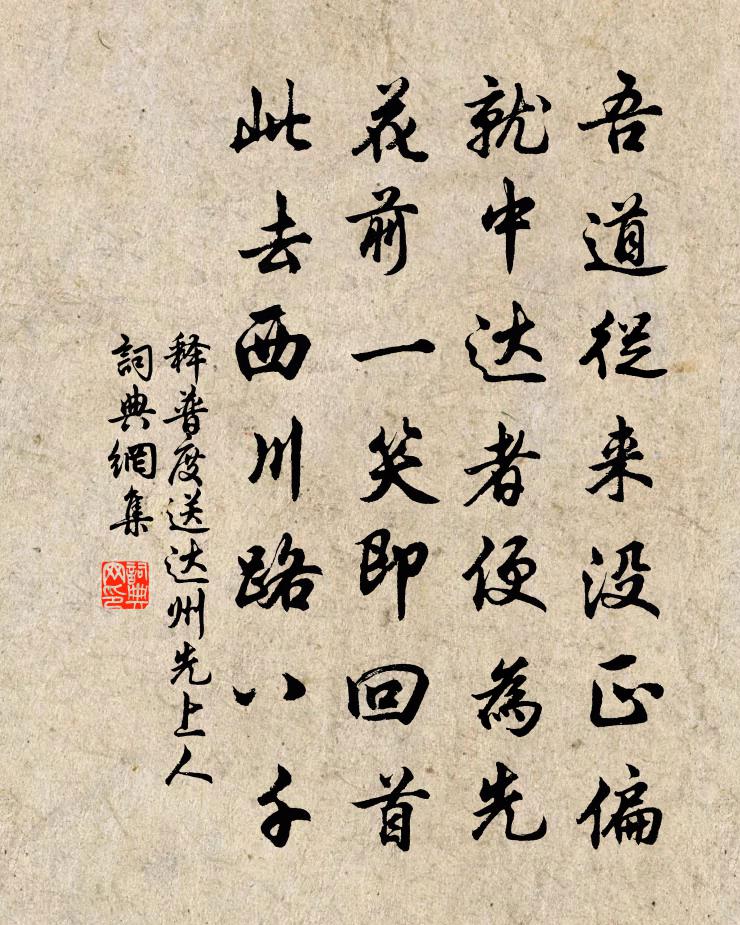 吾道從来没正偏
就中达者便為先
花前一笑即回首
此去西川路八千
释普度送达州先上人
詞典網集
詞典网印